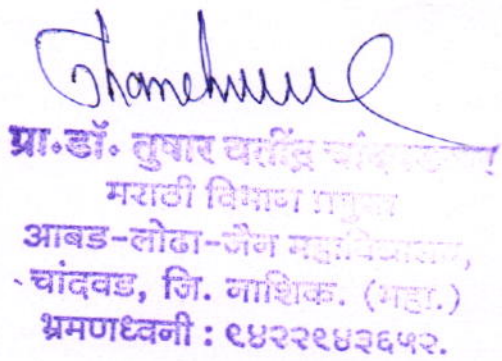 प्रा.डॉ. तुषार
मराठी विभाग प्रमुख
आबड-लोढा-जैन महाविद्यालय,
चांदवड, जि. नाशिक. (महा.)
भ्रमणध्वनी : ९४२२९४३६५२.